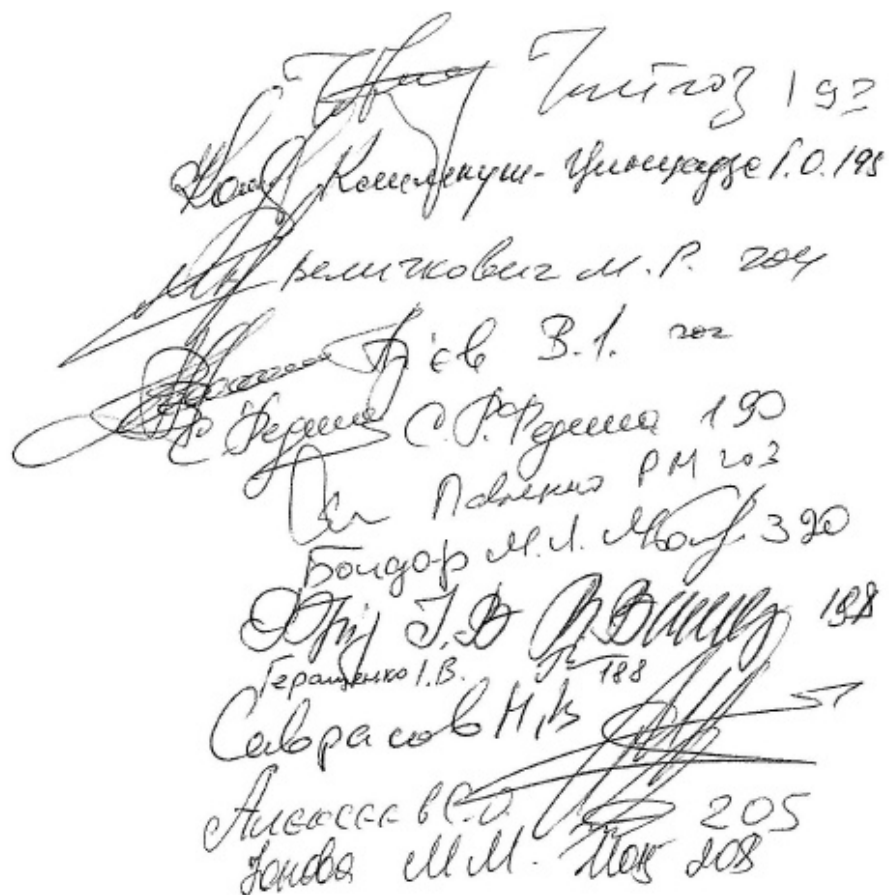 Чийгоз 192
Климпуш-Цинцадзе І.О. 195
Величкович М.Р. 204
Ар'єв В.І. 202
С.Р. Федина 190
Павленко РМ 203
Бондар М.Л. 320
198
Геращенко І.В. 188
Саврасов М.В
Алексєєв С.О. 205
Іонова М.М. 208